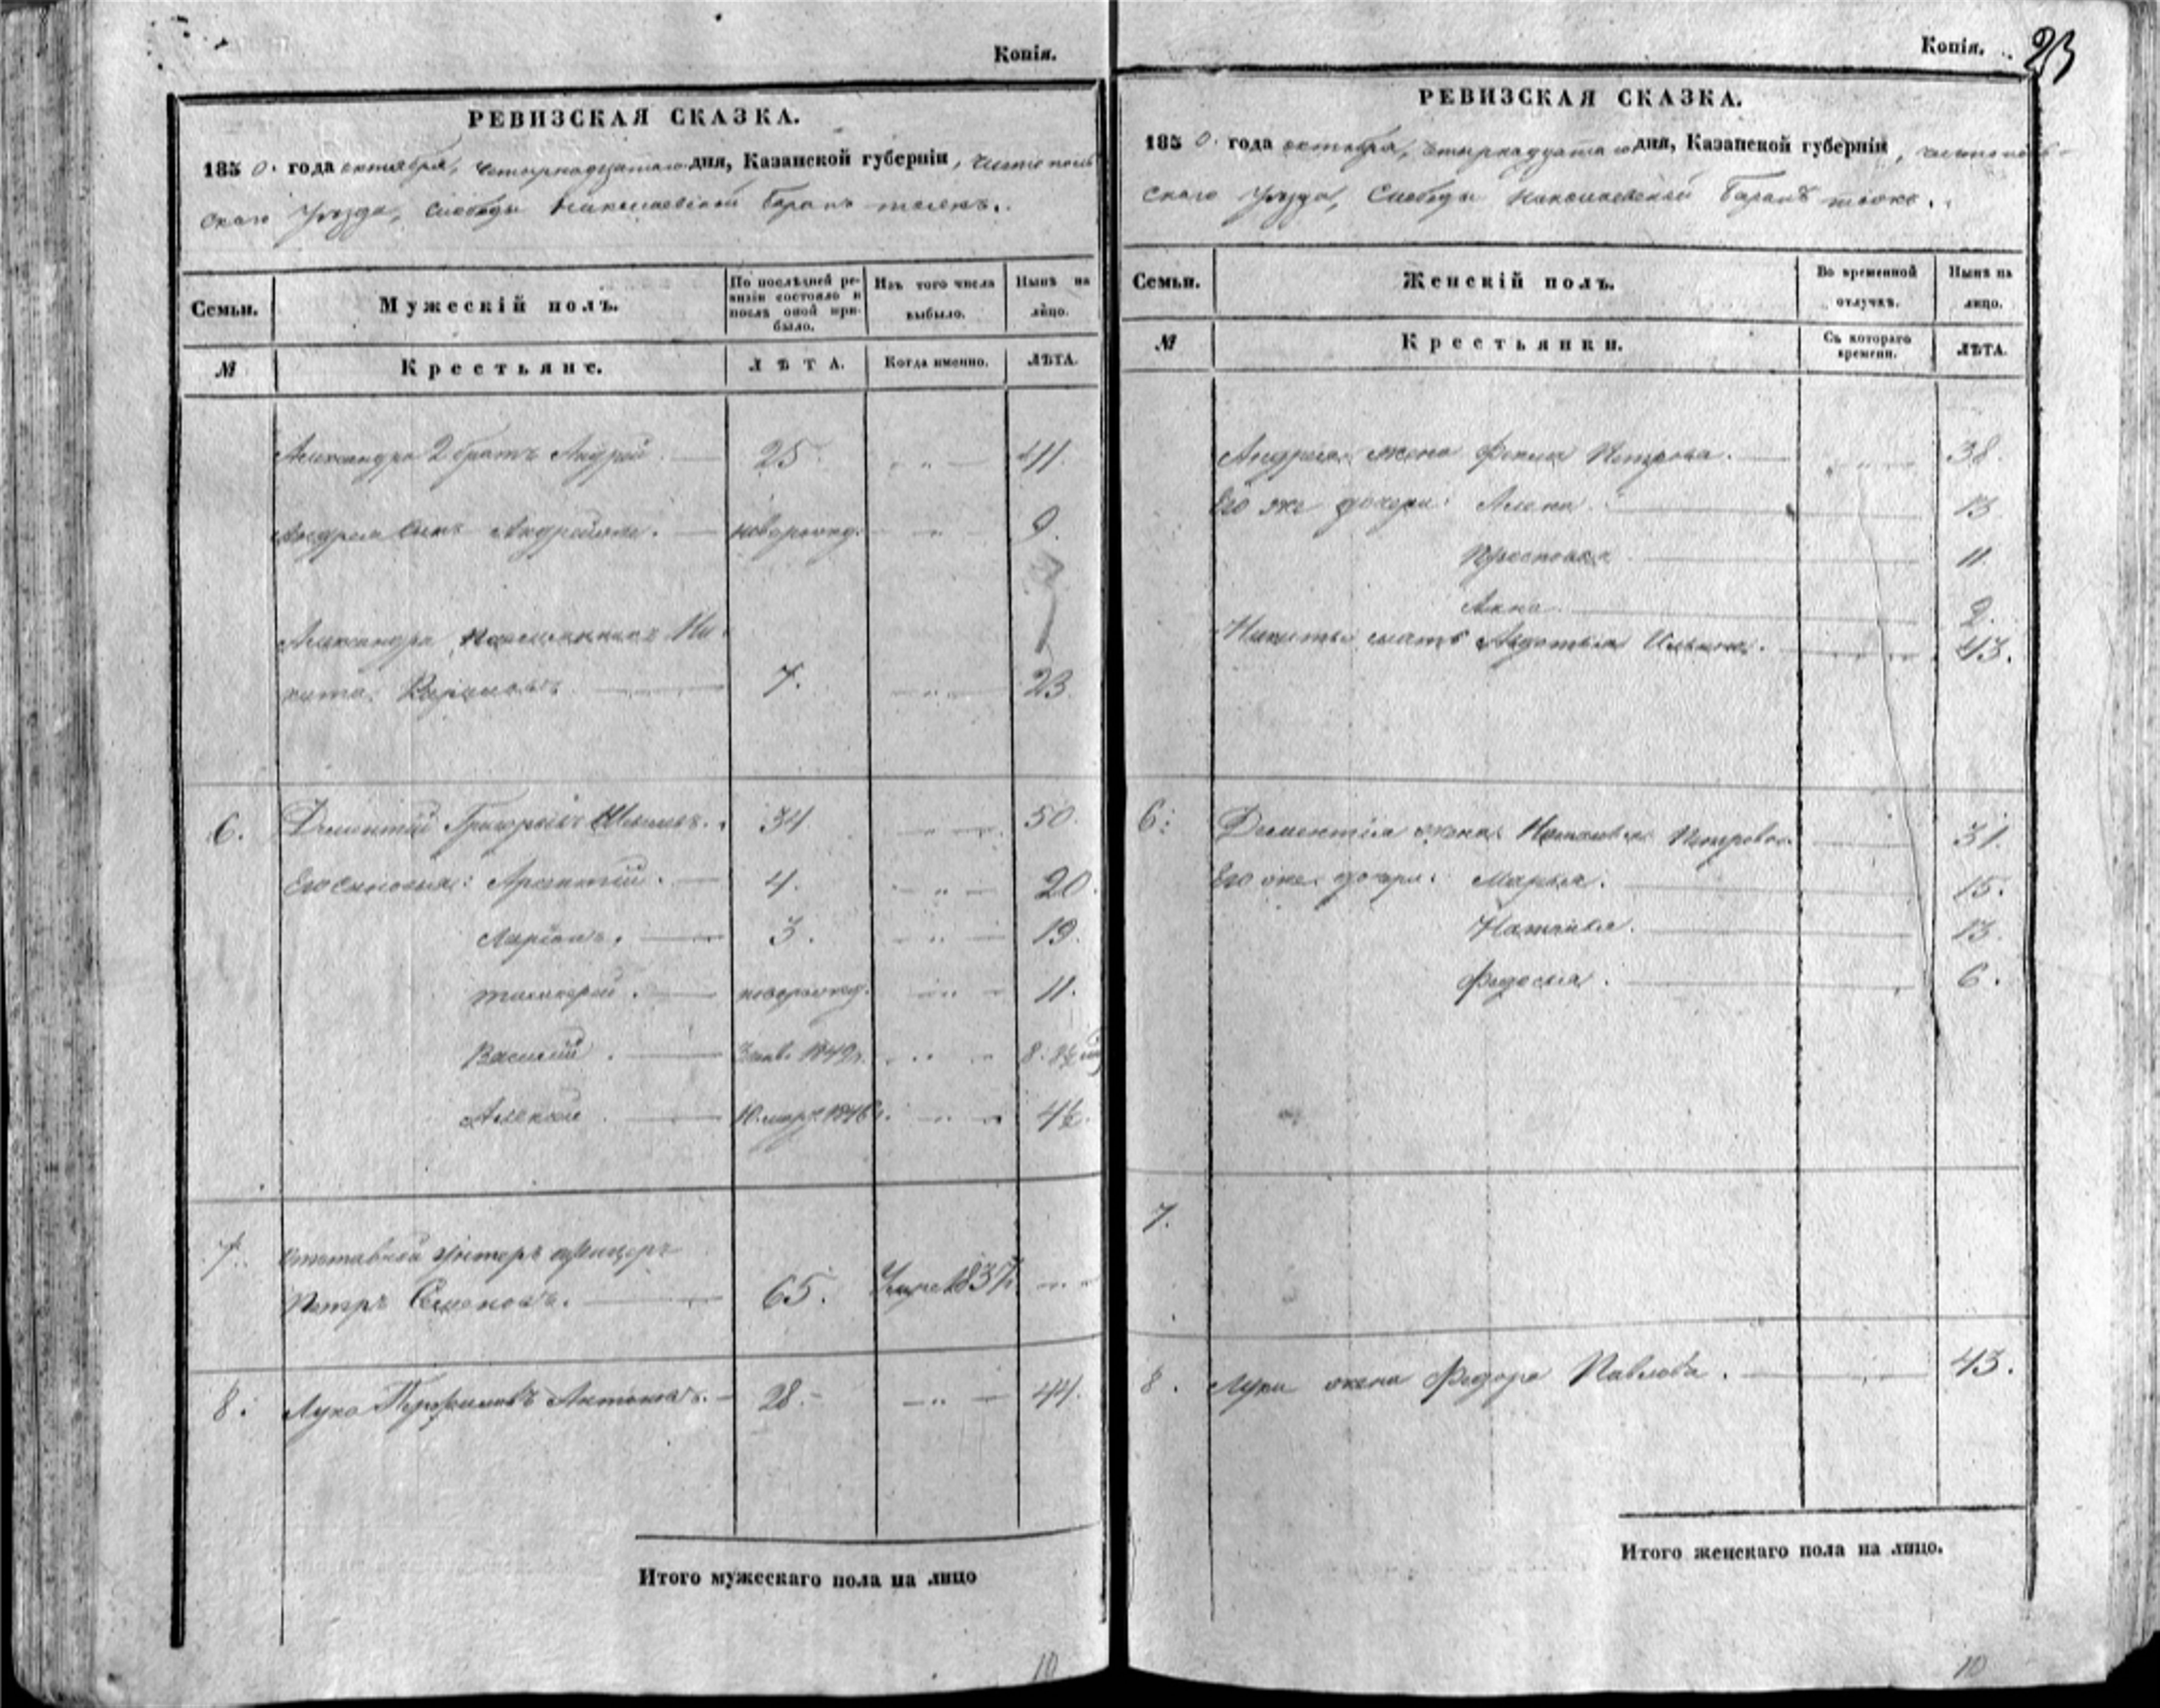 Копія.
РЕВИЗСКАЯ СКАЗКА.
1850. года октября, четырнадцатаго дня, Казанской губерніи, чистополь
скаго уѣзда, Слободы Николаевской Баранъ тожъ.
Семьи.
Мужескій полъ.
По послѣдней ре-
визіи состояло и
послѣ оной при-
было.
Изъ того числа
выбыло.
Нынѣ на
лицо.
№
Крестьяне.
ЛѢТА.
Когда именно.
ЛѢТА.
Александра 2 братъ Андрей. 25. 41.
Андрея сынъ новорожд. 9.
Александра племянникъ Ни
кита 7. 23.
6. Дементій Григорьевъ 34. 50.
Его сыновья: Арсентій. 4. 20.
Ларіонъ. 3. 19.
новорожд. 11.
Василій. 1842г. 8.
Алексей 10 март. 1846г. 4½.
7. отставной унтеръ офицеръ
Петръ Семеновъ. 65. Умре 1837
8. Лука Антоновъ. 28. 44.
Итого мужескаго пола на лицо
10
Копія.
23
РЕВИЗСКАЯ СКАЗКА.
1850. года октября, четырнадцатаго дня, Казанской губерніи, чистополь-
скаго уѣзда, Слободы Николаевской Баранъ тожъ.
Семьи.
Женскій полъ.
Во временной
отлучкѣ.
Нынѣ на
лицо.
№
Крестьянки.
Съ котораго
времени.
ЛѢТА.
Андрея жена Фекла Петрова. 38.
Его же дочери: Алена. 13
11
Анна. 2.
Никиты мать Авдотья Ильина. 43.
6. Дементія жена Наталья Петрова. 31.
Его же дочери: Марья. 15.
Наталья. 13.
Федосья. 6.
7.
8. Луки жена Федора Павлова. 43.
Итого женскаго пола на лицо.
10